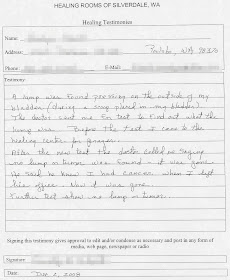 HEALING ROOMS OF SILVERDALE, WA
Healing Testimonies
Name:
Address: Poulsbo, WA 98370
Phone: E-Mail:
Testimony:
A lump was found pressing on the outside of my
bladder (during a scope placed in my bladder).
The doctor sent me for test to find out what the
lump was. Before the test I came to the
healing center for prayer.
After the new test the doctor called me saying
no lump or tumor was found - it was gone.
He said he knew I had cancer when I left
his office. Now it was gone.
Further test show no lump or tumor.
Signing this testimony gives approval to edit and/or condense as necessary and post in any form of
media, web page, newspaper or radio
Signature
Date: Dec 2, 2008